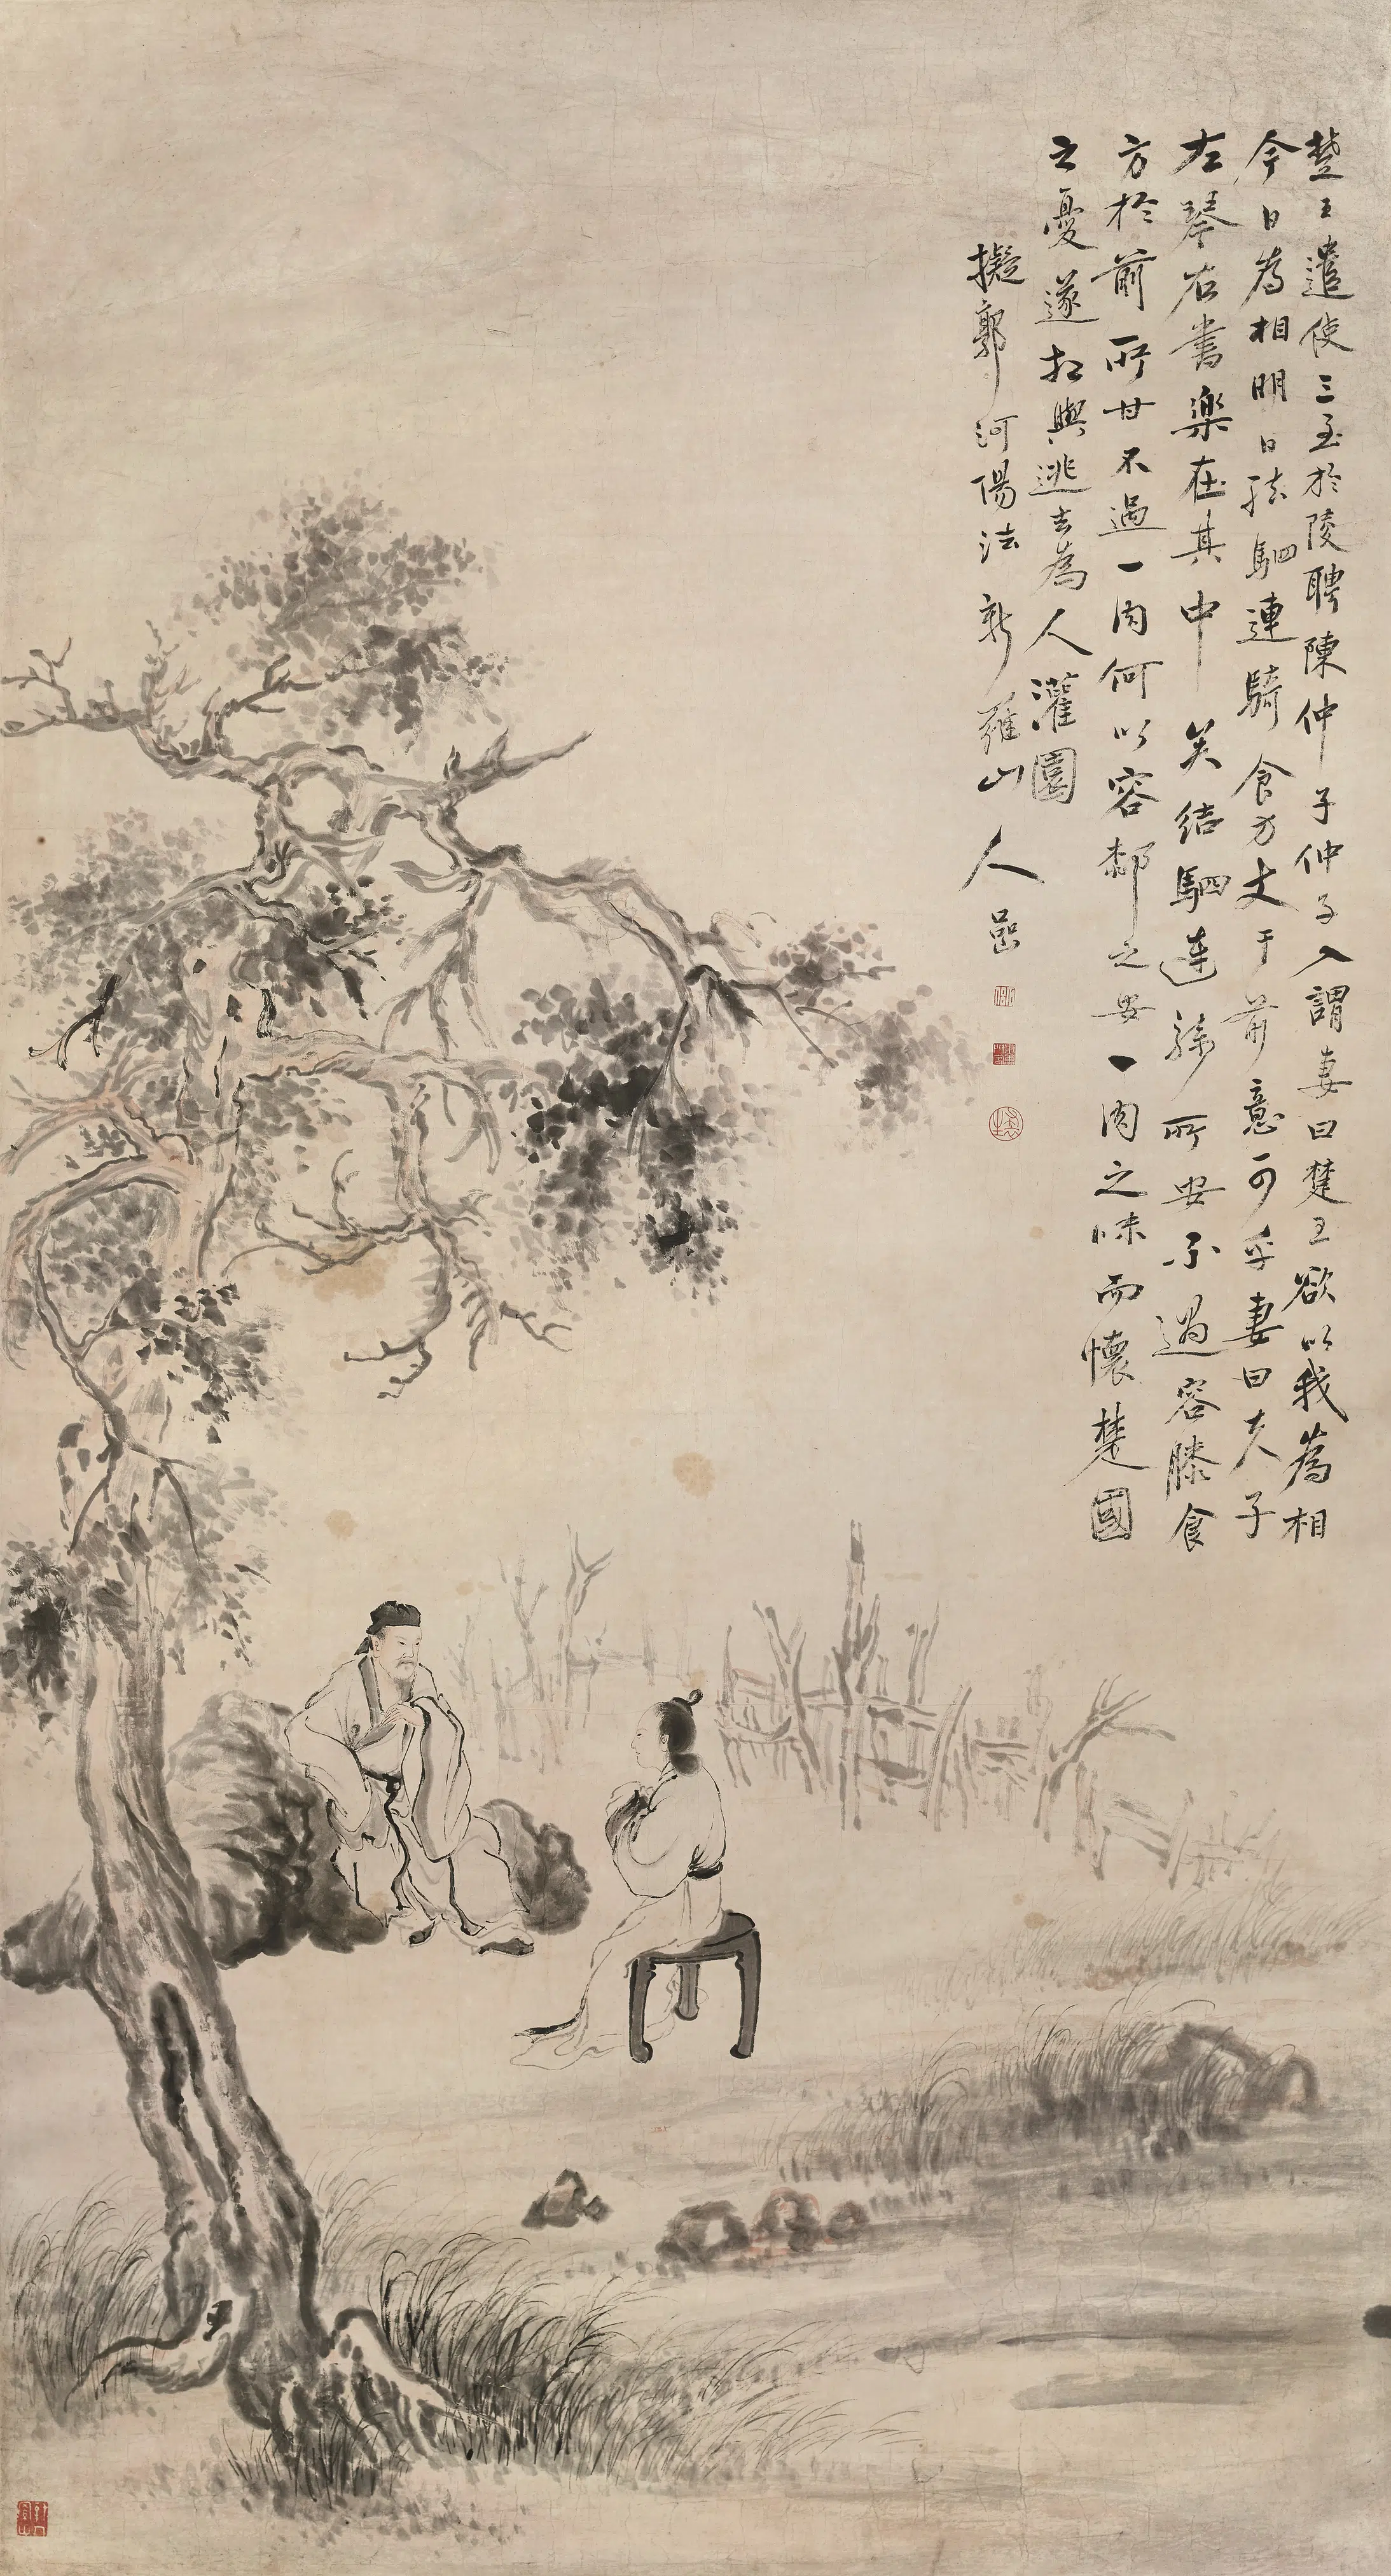 楚王遣使三至於陵聘陳仲子仲子入謂妻曰楚王欲以我為相
今日為相明日結駟連騎食方丈于前意可乎妻曰夫子
左琴右書樂在其中矣結駟連騎所安不過容膝食
方於前所甘不過一肉何以容郄之安一肉之味而懷楚國
之憂遂相與逃去為人灌園
擬郭河陽法新羅山人嵒